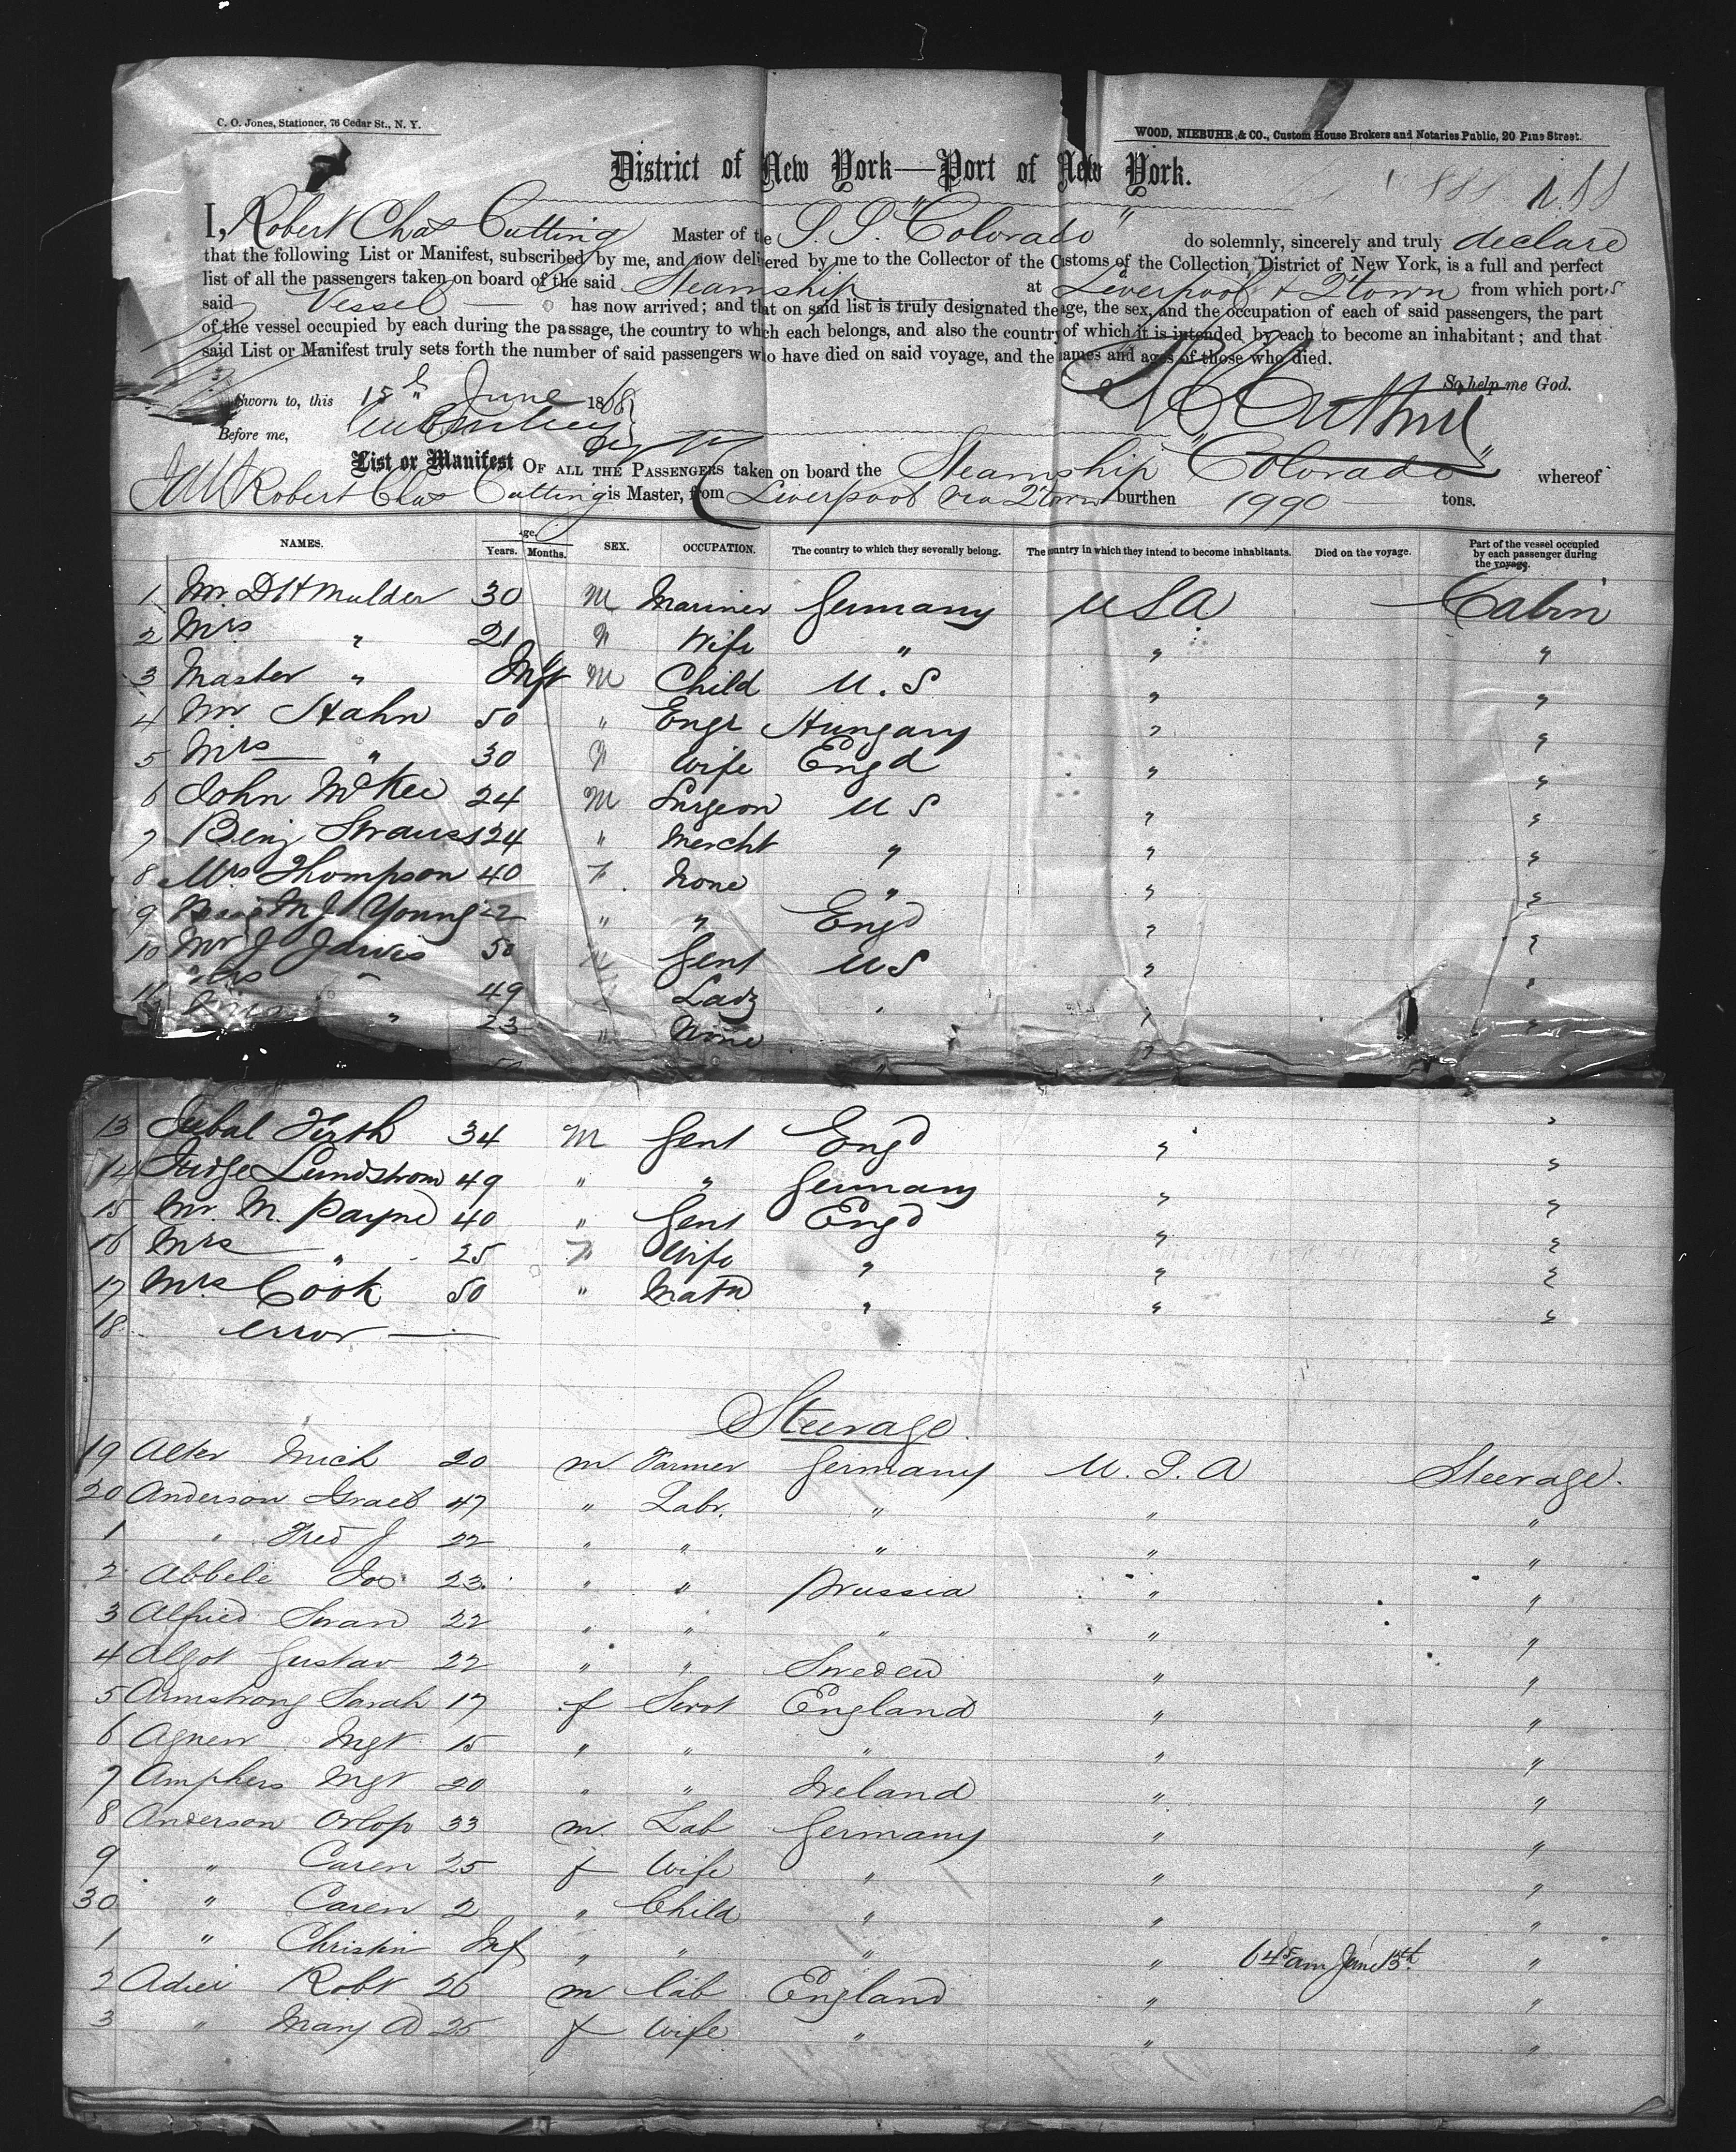 C. O. Jones, Stationer, 76 Cedar St., N. Y.
WOOD, NIEBUHR & CO., Custom House Brokers and Notaries Public, 20 Pine Street.
District of New York—Port of New York.
I, Robert Chas Cutting Master of the S. S. "Colorado" do solemnly, sincerely and truly declare
that the following List or Manifest, subscribed by me, and now delivered by me to the Collector of the Customs of the Collection District of New York, is a full and perfect
list of all the passengers taken on board of the said Steamship at Liverpool & Qtown from which ports
said Vessel has now arrived; and that on said list is truly designated the age, the sex, and the occupation of each of said passengers, the part
of the vessel occupied by each during the passage, the country to which each belongs, and also the country of which it is intended by each to become an inhabitant; and that
said List or Manifest truly sets forth the number of said passengers who have died on said voyage, and the names and ages of those who died.
So help me God.
Sworn to, this 15th June 1868
Before me,
List or Manifest OF ALL THE PASSENGERS taken on board the Steamship "Colorado" whereof
Robert Chas Cutting is Master, from Liverpool via Qtown burthen 1990 tons.
NAMES. Age. Years. Months. SEX. OCCUPATION. The country to which they severally belong. The country in which they intend to become inhabitants. Died on the voyage. Part of the vessel occupied by each passenger during the voyage.
1 Mr D H Mulder 30 M Mariner Germany USA Cabin
2 Mrs " 21 F Wife " " "
3 Master " Inft M Child U. S " "
4 Mr Hahn 50 " Engr Hungary " "
5 Mrs " 30 F Wife Engd " "
6 John McKee 24 M Surgeon U S " "
7 Benj Strauss 24 " Mercht " " "
8 Mrs Thompson 40 F. None " " "
9 Miss M J Young 22 " " Engd " "
10 Mr J Jarvis 50 M Gent US " "
11 Mrs " 49 Lady " " "
" 23 " None " "
13 Jubal Firth 34 M Gent Engd " "
14 Judge Lundstrom 49 " " Germany " "
15 Mr. M. Payne 40 " Gent Engd " "
16 Mrs " 25 F Wife " " "
17 Mrs Cook 50 " Matn " " "
18 error
Steerage.
19 Alter Mich 20 m Farmer Germany U. S. A Steerage.
20 Anderson Israel 47 " Labr. " " "
1 " Fred J 22 " " " " "
2 Abbele Jos 23 " " Prussia " "
3 Alfried Swan 22 " " " " "
4 Algot Gustav 22 " " Sweden " "
5 Armstrong Sarah 17 f Servt England " "
6 Agnew Mgt 15 " " " " "
7 Amphers Mgt 20 " " Ireland " "
8 Anderson Orlop 33 m. Lab Germany " "
9 " Caren 25 f Wife " " "
30 " Caren 2 " Child " " "
1 " Christin Inf " " " " 6 45 am June 13th "
2 Adiei Robt 26 m lab England " "
3 " Mary A 25 f Wife " " "